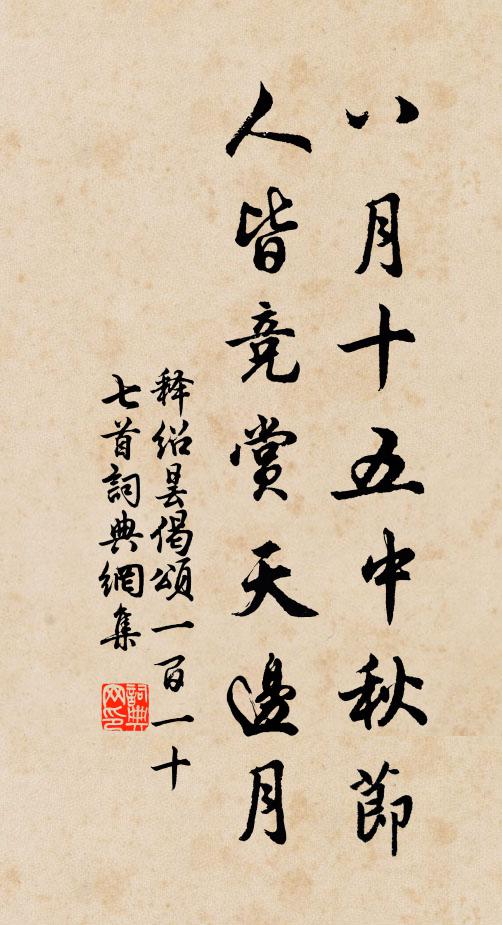 八月十五中秋節
人皆竞赏天邊月
释绍昙偈頌一百一十
七首詞典網集
詞典
网印